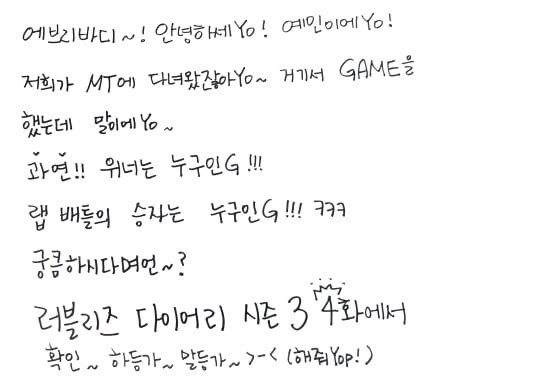 에브리바디~! 안녕하세Yo! 예민이에Yo!
저희가 MT에 다녀왔잖아Yo~ 거기서 GAME을
했는데 말이에Yo~
과연!! 위너는 누구인G!!!
랩 배틀의 승자는 누구인G!!! ㅋㅋㅋ
궁큼하시다며언~?
러블리즈 다이어리 시즌 3 4화에서
확인~ 하등가~ 말등가~ >-< (해줘Yop!)